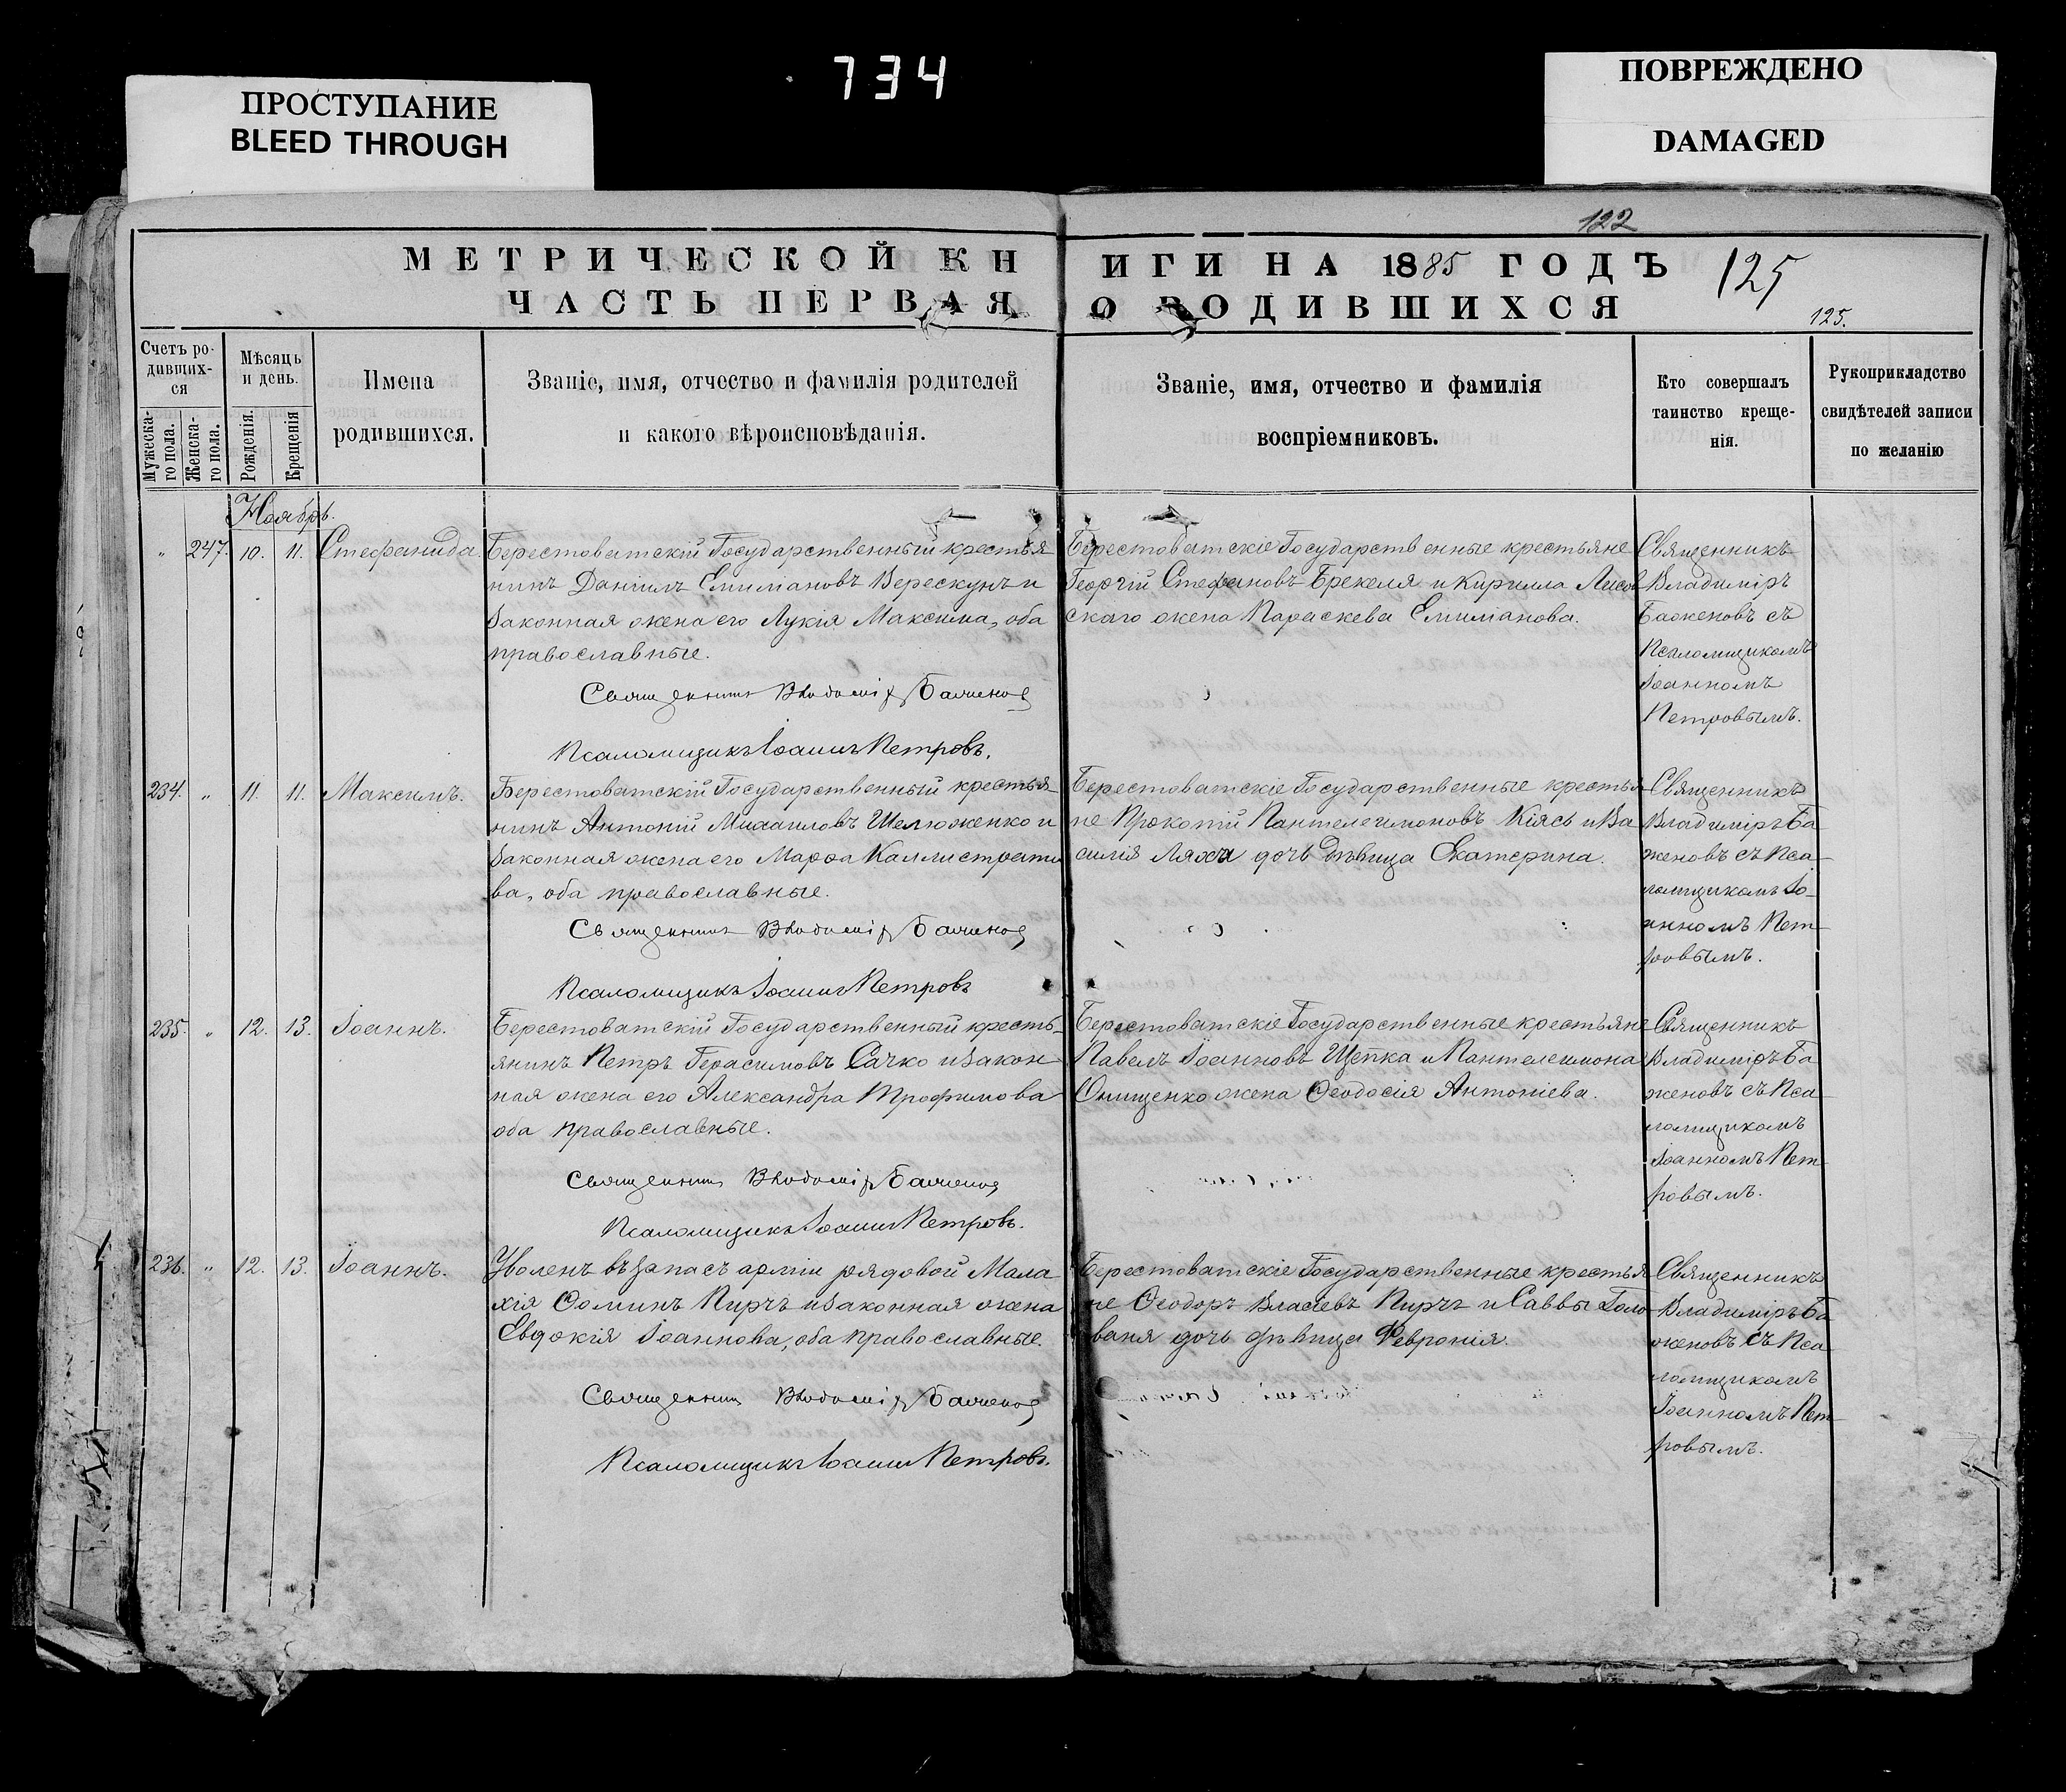 734
ПРОСТУПАНИЕ
BLEED THROUGH
ПОВРЕЖДЕНО
DAMAGED
122
МЕТРИЧЕСКОЙ КНИГИ НА 1885 ГОДЪ
125
ЧАСТЬ ПЕРВАЯ О РОДИВШИХСЯ
125.
Счетъ ро-
дивших-
ся
Мужеска-
го пола.
Женска-
го пола.
Мѣсяць
и день.
Рожденія.
Крещенія
Имена
родившихся.
Званіе, имя, отчество и фамилія родителей
и какого вѣроисповѣданія.
Званіе, имя, отчество и фамилія
воспріемниковъ.
Кто совершалъ
таинство креще-
нія.
Рукоприкладство
свидѣтелей записи
по желанію
Ноябрь.
" 247. 10. 11. Стефанида.
Берестоватскій Государственный крестья
нинъ Даніилъ Епимановъ Верескунъ и
законная жена его Лукія Максима, оба
православные.
Священникъ Владиміръ Баженовъ
Псаломщикъ Іоаннъ Петровъ.
Берестоватскіе Государственные крестьяне
Георгій Стефановъ Брекеля и Кирилла Лисов
скаго жена Параскева Епиманова.
Священникъ
Владиміръ
Баженовъ съ
Псаломщикомъ
Іоанномъ
Петровымъ.
234. " 11. 11. Максимъ.
Берестоватскій Государственный крестья-
нинъ Антоній Михаиловъ Шелюженко и
законная жена его Марѳа Каллистрато
ва, оба православные.
Священникъ Владиміръ Баженовъ
Псаломщикъ Іоаннъ Петровъ
Берестоватскіе Государственные крестья-
не Прокопій Пантелеимоновъ Кіясь и Ва
силія Ляха дочь дѣвица Екатерина.
Священникъ
Владиміръ Ба
женовъ съ Пса-
ломщикомъ Іо-
анномъ Пет-
ровымъ.
235. " 12. 13. Іоаннъ.
Берестоватскій Государственный кресть-
янинъ Петръ Герасимовъ Сачко и закон
ная жена его Александра Трофимова
оба православные.
Священникъ Владиміръ Баженовъ
Псаломщикъ Іоаннъ Петровъ.
Берестоватскіе Государственные крестьяне
Павелъ Іоанновъ Щепка и Пантелеимона
Онищенко жена Ѳеодосія Антоніева.
Священникъ
Владиміръ Ба
женовъ съ Пса-
ломщикомъ
Іоанномъ Пет-
ровымъ.
236. " 12. 13. Іоаннъ.
Уволенъ въ запасъ арміи рядовой Мала
хія Ѳоминъ Пирчъ и законная жена
Евдокія Іоаннова, оба православные.
Священникъ Владиміръ Баженовъ
Псаломщикъ Іоаннъ Петровъ.
Берестоватскіе Государственные крестья
не Ѳеодоръ Власіевъ Пирчъ и Саввы Голо
ваня дочь дѣвица Февронія.
Священникъ
Владиміръ Ба
женовъ съ Пса
ломщикомъ
Іоанномъ Пет-
ровымъ.